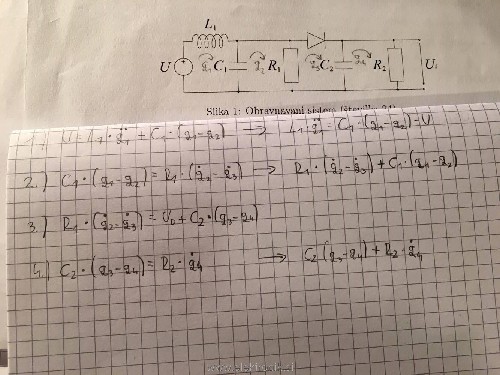 L₁
U q₁ C₁ q₂ R₁ q₃ C₂ q₄ R₂ U
Slika 1: Obravnavani sistem
2.) C₁·(q₁-q₂) = R₁·(q̇₂-q̇₃) → R₁·(q̇₂-q̇₃) + C₁·(q₁-q₂)
3.) R₁·(q̇₂-q̇₃) = U₀ + C₂·(q₃-q₄)
4.) C₂·(q₃-q₄) = R₂·q̇₄ → C₂(q₃-q₄) + R₂·q̇₄